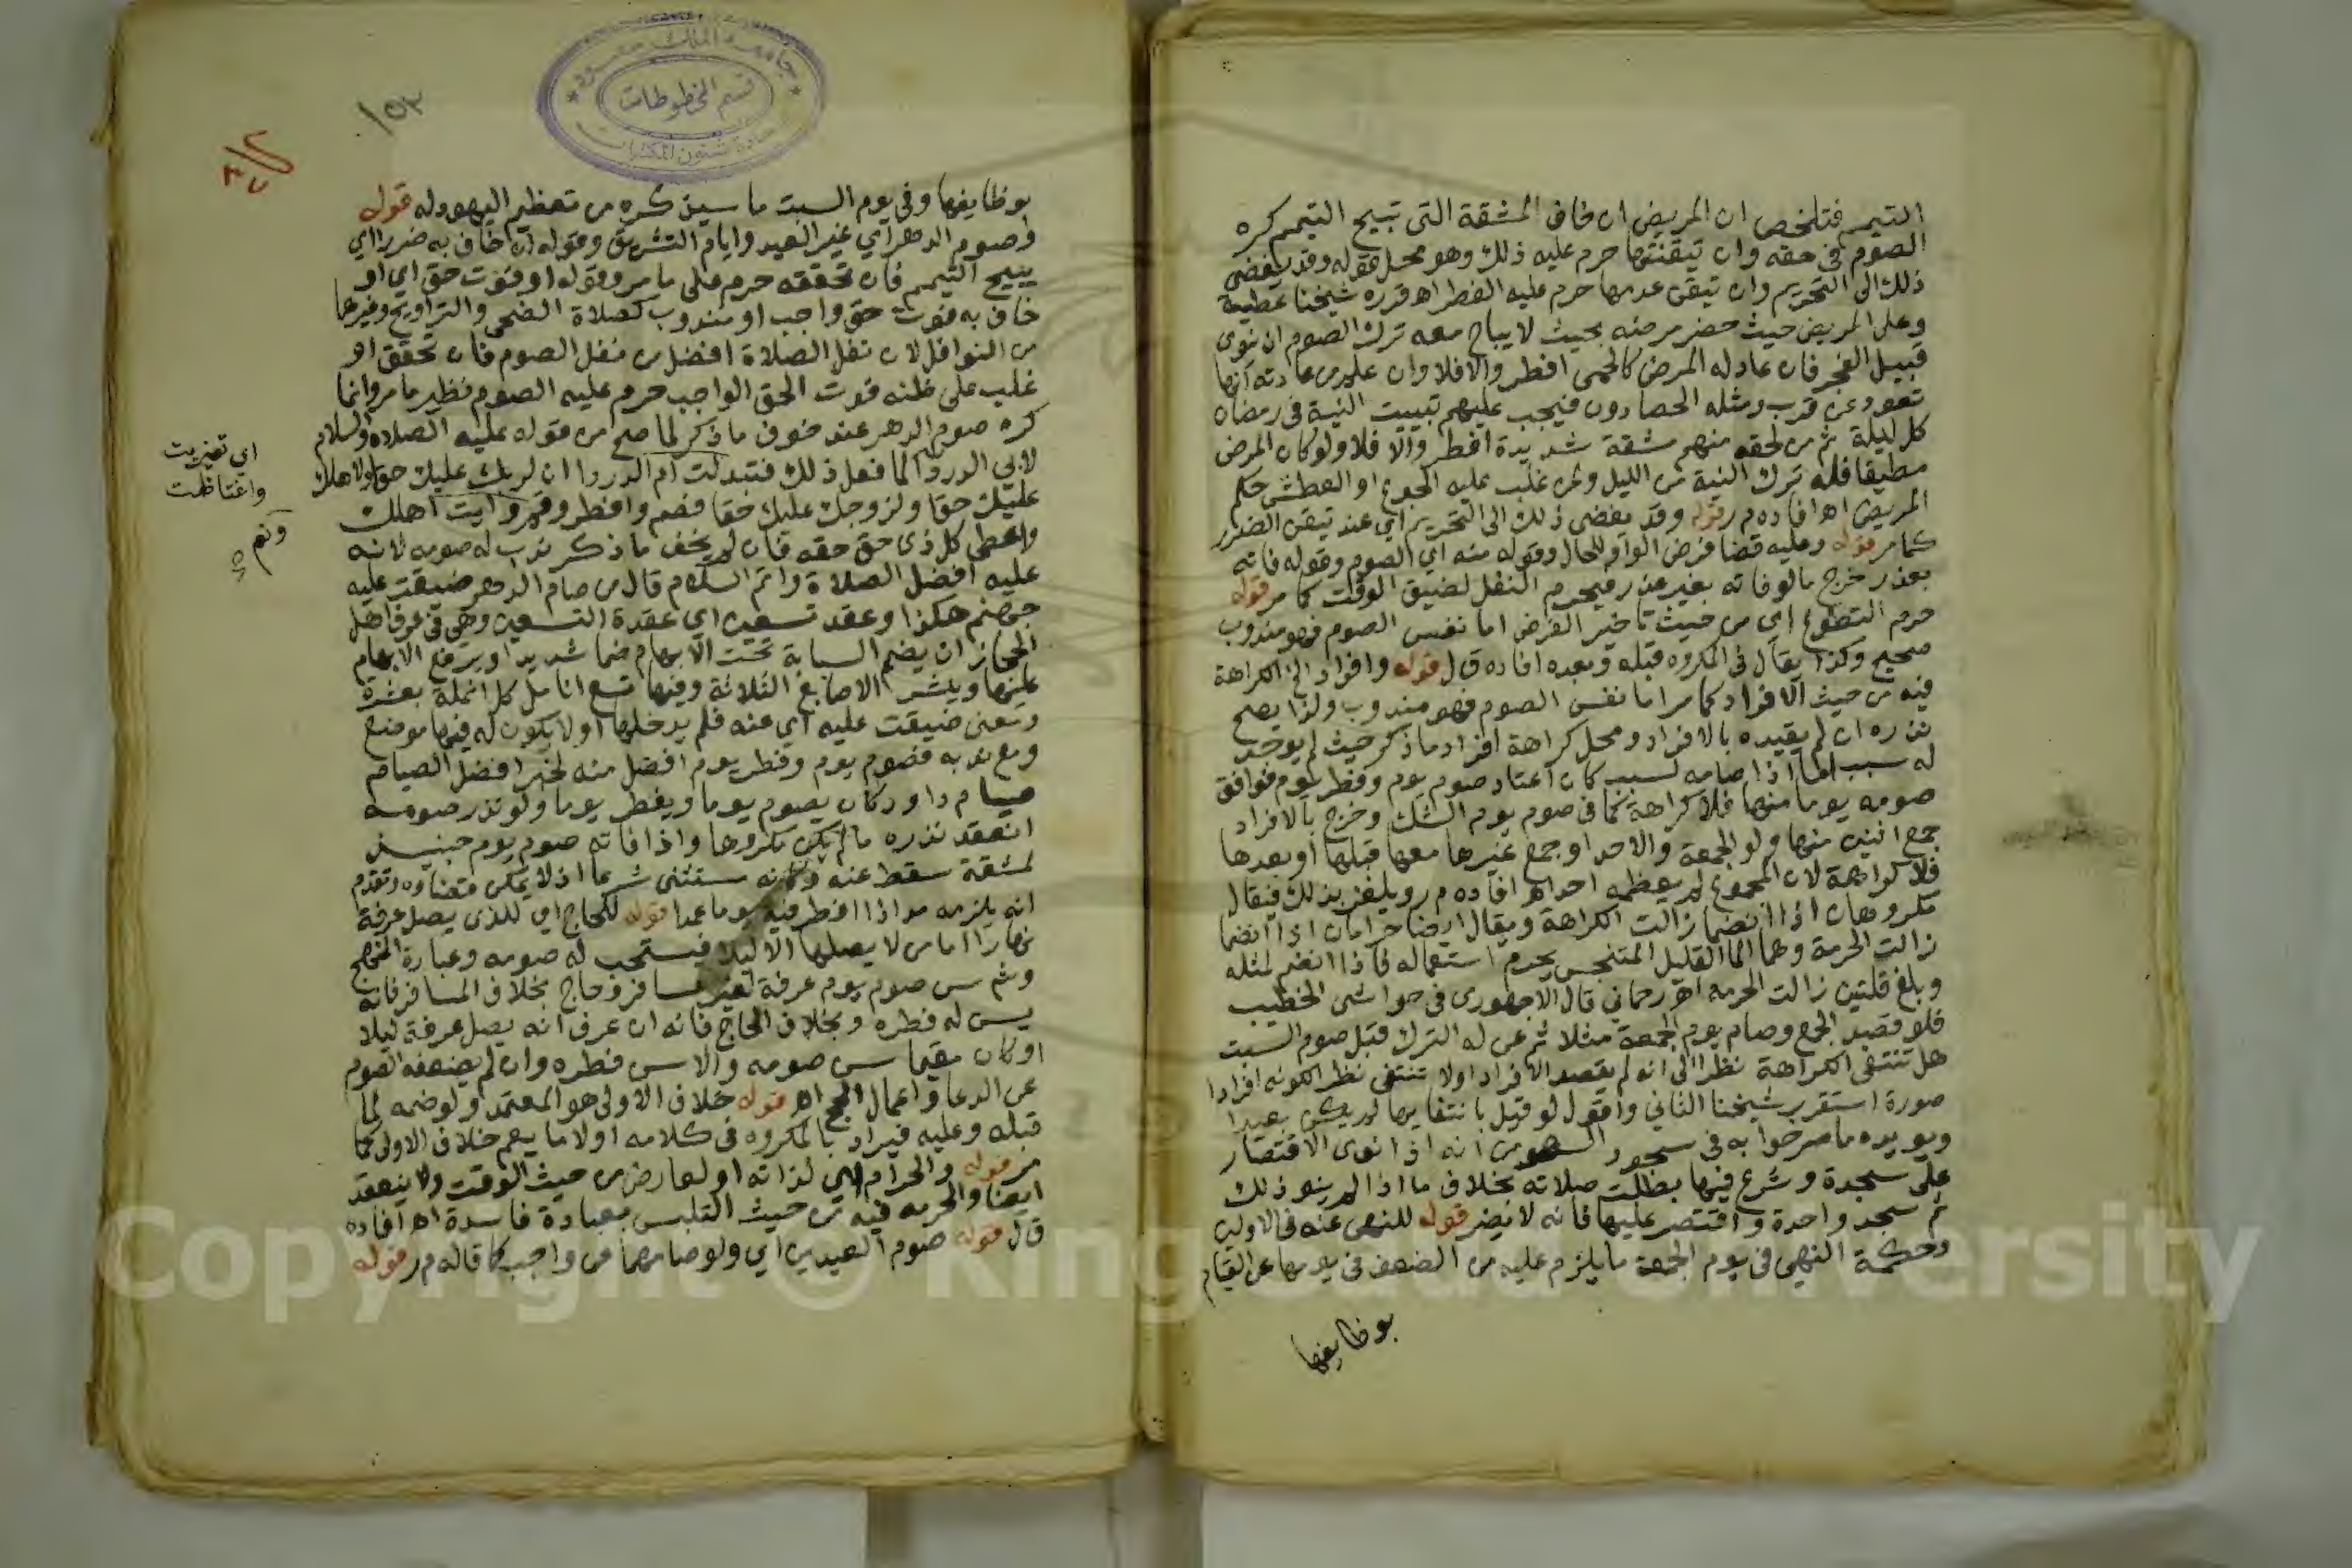 التيمم فتلخص ان المريض ان خاف المشقة التى تبيح التيمم كره
الصوم فى حقه وان تيقنها حرم عليه ذلك وهو محمل قوله وقد يفضى
ذلك الى التحريم وان تيقن عدمها حرم عليه الفطر اهـ قرره شيخنا عطية
وعلى المريض حيث خف مرضه بحيث لا يباح معه ترك الصوم ان ينوى
قبيل الفجر فان عاد له المرض كالحمى افطر والا فلا وان علم من عادته انها
تعود عن قرب ومثله الحصادون فيجب عليهم تبييت النية فى رمضان
كل ليلة ثم من لحقه منهم مشقة شديدة افطر والا فلا ولو كان المرض
مطبقا فله ترك النية من الليل ومن غلب عليه الجوع او العطش حكم
المريض اهـ افاده م ر قوله وقد يفضى ذلك الى التحريم اي عند تيقن الضرر
كما مر قوله وعليه قضا فرض الواو للحال وقوله منه اي الصوم وقوله فاته
بعذر خرج ما لو فاته بغير عذر فيحرم النفل لضيق الوقت كما مر قوله
حرم التطوع اي من حيث تاخير الفرض اما نفس الصوم فهو مندوب
صحيح وكذا يقال فى المكروه قبله وبعده افاده ق ل قوله وافراد الخ الكراهة
فيه من حيث الافراد كما مر اما نفس الصوم فهو مندوب ولذا يصح
نذره ان لم يقيده بالافراد ومحل كراهة افراد ما ذكر حيث لم يوجد
له سبب اما اذا صامه لسبب كان اعتاد صوم يوم وفطر يوم فوافق
صومه يوما منها فلا كراهة كما فى صوم يوم الشك وخرج بالافراد
جمع اثنين منها ولو الجمعة والاحد او جمع غيرها معها قبلها او بعدها
فلا كراهة لان المجموع لم يعظمه احد اهـ افاده م ر ويلغز بذلك فيقال
مكروهان اذا انضما زالت الكراهة ويقال ايضا حرامان اذا انضما
زالت الحرمة وهما الما القليل المتنجس يحرم استعماله فاذا انضم لمثله
وبلغ قلتين زالت الحرمه اهـ رحماني قال الاجهورى فى حواشى الخطيب
فلو قصد الجمع وصام يوم الجمعة مثلا ثم عن له الترك قبل صوم السبت
هل تنتفى الكراهة نظرا الى انه لم يقصد الافراد اولا تنتفى نظرا لكونه افرادا
صورة استقرب شيخنا الثاني واقول لو قيل بانتفايها لم يكن بعيدا
ويويده ما صرحوا به فى سجود السهو من انه اذا نوى الاقتصار
على سجدة وشرع فيها بطلت صلاته بخلاف ما اذا لم ينو ذلك
ثم سجد واحدة واقتصر عليها فانه لا يضر قوله للنهى عنه فى الاولين
وحكمة النهى فى يوم الجمعة ما يلزم عليه من الضعف فى يومها عن القيام
بوظايفها
بوظايفها وفى يوم السبت ما سيذكره من تعظيم اليهود له قوله
وصوم الدهر اي غير العيد وايام التشريق وقوله ان خاف به ضررا اي
يبيح التيمم فان تحققه حرم على ما مر وقوله او فوت حق اي او
خاف به فوت حق واجب او مندوب كصلاة الضحى والتراويح وغيرها
من النوافل لان نفل الصلاة افضل من نفل الصوم فان تحقق او
غلب على ظنه فوت الحق الواجب حرم عليه الصوم نظير ما مر وانما
كره صوم الدهر عند خوف ما ذكر لما صح من قوله عليه الصلاة والسلام
لابى الدردا لما فعل ذلك فتبذلت ام الدردا ان لربك عليك حقا ولاهلك
عليك حقا ولزوجك عليك حقا فصم وافطر وقم وايت اهلك
واعطى كل ذى حق حقه فان لم يخف ما ذكر ندب له صومه لانه
عليه افضل الصلاة واتم السلام قال من صام الدهر ضيقت عليه
جهنم هكذا وعقد تسعين اي عقدة التسعين وهي فى عرف اهل
الحجاز ان يضم السبابة تحت الابهام ضما شديدا ويرفع الابهام
عليها وينشر الاصابع الثلاثة وفيها تسع انامل كل انملة بعشرة
ومعنى ضيقت عليه اي عنه فلم يدخلها او لا يكون له فيها موضع
ومع ندبه فصوم يوم وفطر يوم افضل منه لخبر افضل الصيام
صيام داود كان يصوم يوما ويفطر يوما ولو نذر صومه
انعقد نذره ما لم يكن مكروها واذا فاته صوم يوم حينئذ
لمشقة سقط عنه وكانه مستثنى شرعا اذ لا يمكن قضاوه وتقدم
انه يلزمه مد اذا افطر فيه يوما عمدا قوله للحاج اي للذى يصل عرفة
نهارا اما من لا يصلها الا ليلا فيستحب له صومه وعبارة المنهج
وشم سن صوم يوم عرفة لغير مسافر وحاج بخلاف المسافر فانه
يسن له فطره وبخلاف الحاج فانه ان عرف انه يصل عرفة ليلا
او كان مقيما سن صومه والا سن فطره وان لم يضعفه الصوم
عن الدعا واعمال الحج اهـ قوله خلاف الاولى هو المعتمد ولو ضمه لما
قبله وعليه فيراد بالمكروه فى كلامه اولا ما يعم خلاف الاولى كما
مر قوله والحرام اي لذاته او لعارض من حيث الوقت ولا ينعقد
ايضا والحرمه فيه من حيث التلبس بعبادة فاسدة اهـ افاده
ق ل قوله صوم العيدين اي ولو صامهما عن واجب كما قاله م ر قوله
اي تغيرت
واغتاظت
ونم
١٥٣
جامعة الملك سعود
قسم المخطوطات
عمادة شئون المكتبات
Copyright © King Saud University